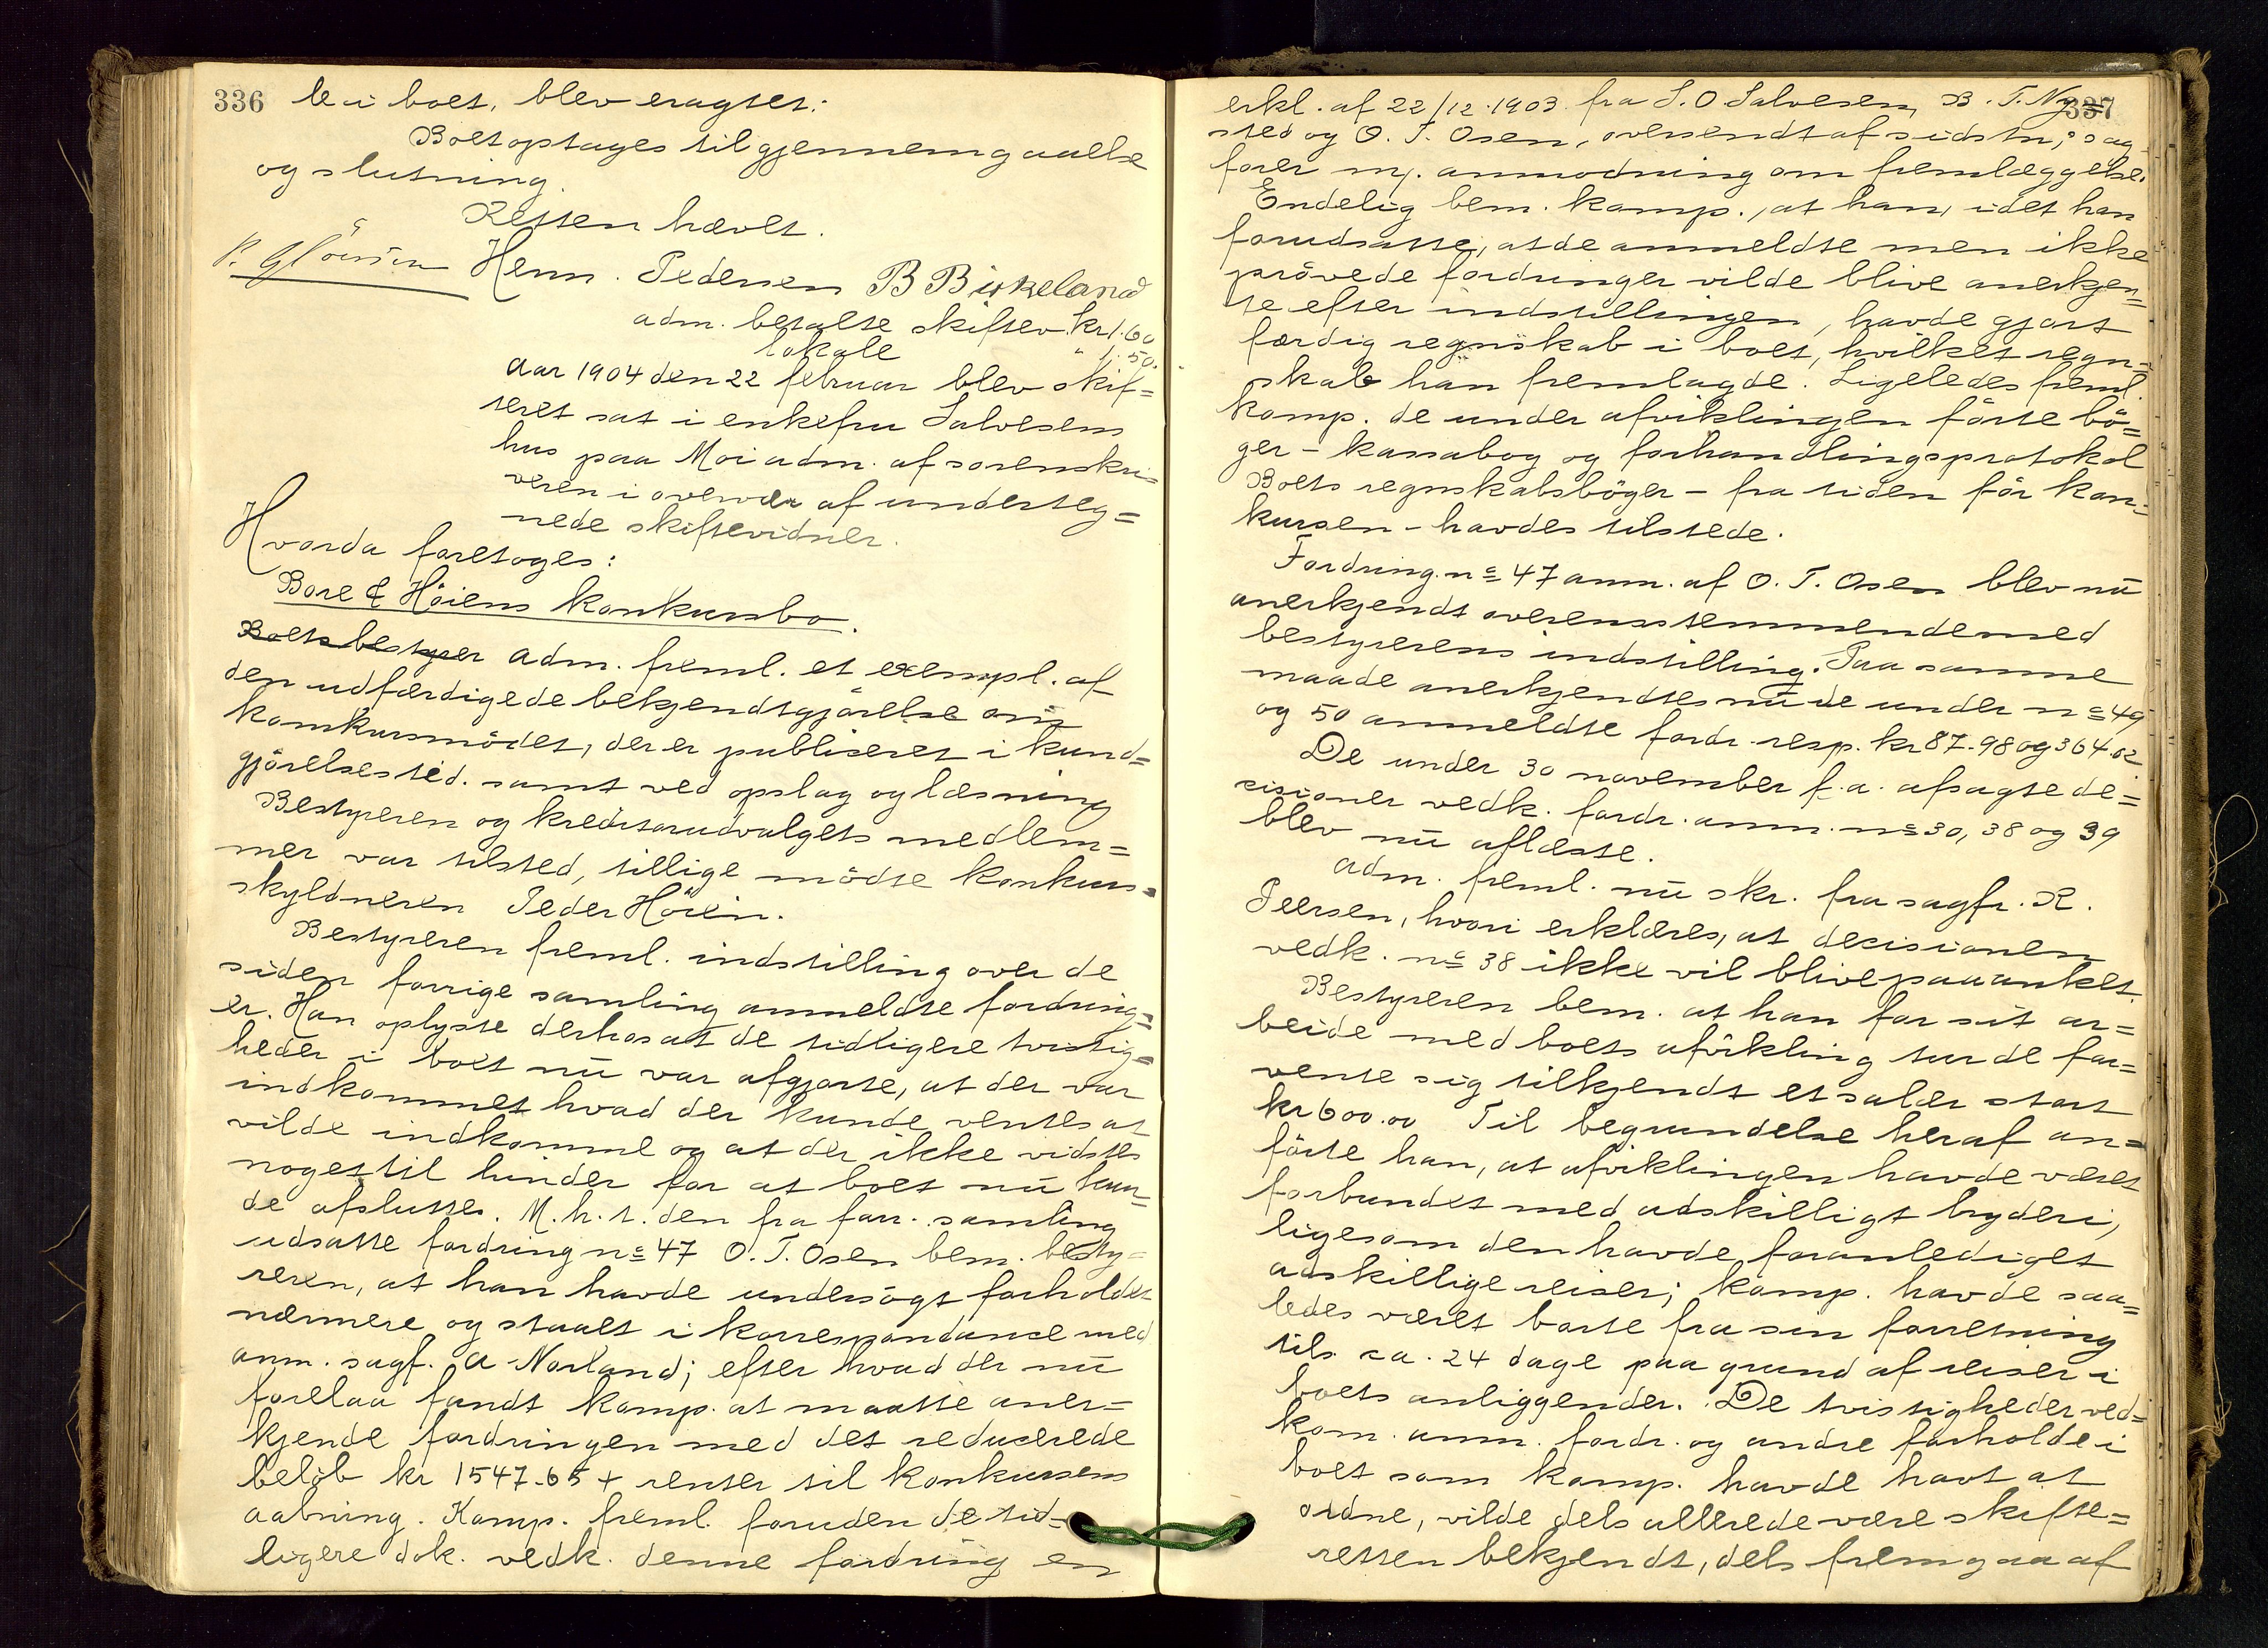 336
le i boet, blev eragtet:
Boet optages til gjennemgaaelse
og slutning.
Retten hævet.
Henn. Pedersen B Birkeland
adm. betalte skiftev. kr 1.60
lokale " 1.50.
Aar 1904 den 22 februar blev skif=
teret sat i enkefru Salvesens
hus paa Moi adm. af sorenskri=
veren i overvær af underteg=
nede skiftevidner.
Hvorda foretoges:
Bore & Höiens konkursbo.
Boets bestyrer Adm. freml. et exempl. af
den udfærdigede bekjendtgjörelse om
konkursmödet, der er publiseret i kund=
gjörelsestid. samt ved opslag og læsning
Bestyreren og kreditorudvalgets medlem=
mer var tilsted, tillige mödte konkurs=
skyldneren Peder Höien.
Bestyreren freml. indstilling over de
siden forrige samling anmeldte fordring=
er. Han oplyste derhos at de tidligere tvistig=
heder i boet nu var afgjorte, at der var
indkommet hvad der kunde ventes at
vilde indkomme og at der ikke vidstes
noget til hinder for at boet nu kun=
de afsluttes. M.h.t. den fra forr. samling
udsatte fordring no 47 O.T. Osen bem. besty=
reren, at han havde undersögt forholdet
nærmere og staaet i korrespondance med
anm. sagf. A Norland; efter hvad der nu
forelaa fandt komp. at maatte aner=
kjende fordringen med det reducerede
belöb kr 1547.65 + renter til konkursens
aabning. Komp. freml. foruden de tid=
ligere dok. vedk. denne fordring en
337
erkl. af 22/12.1903 fra S.O Salvesen, B.T. Ny=
sted og O.T. Osen, oversendt af sidstn.s sag
förer m/. anmodning om fremlæggelse.
Endelig bem. komp., at han, idet han
forudsatte, at de anmeldte men ikke
prövede fordringer vilde blive anerkjen=
te efter indstillingen, havde gjort
færdig regnskab i boet, hvilket regn=
skab han fremlagde. Ligeledes freml.
komp. de under afviklingen förte bö=
ger - kassabog og forhandlingsprotokol
Boets regnskabsböger - fra tiden för kon=
kursen - havdes tilstede.
Fordring no 47 anm. af O.T. Osen blev nu
anerkjendt overensstemmende med
bestyrerens indstilling. Paa samme
maade anerkjendtes nu de under no 49
og 50 anmeldte fordr. resp. kr 87.98 og 364.62
De under 30 november f.a. afsagte de=
cisioner vedk. fordr. anm. no 30, 38 og 39
blev nu aflæste.
Adm. freml. nu skr. fra sagfr. R.
Peersen, hvori erklæres, at decisionen
vedk. no 38 ikke vil blive paaanket.
Bestyreren bem. at han for sit ar=
beide med boets afvikling turde for=
vente sig tilkjendt et salær stort
kr 600.00 Til begrundelse heraf an=
förte han, at afviklingen havde været
forbundet med adskilligt bryderi,
ligesom den havde foranlediget
adskillige reiser; komp. havde saa=
ledes været borte fra sin forretning
tils. ca. 24 dage paa grund af reiser i
boets anliggender. De tvistigheder ved=
kom. anm. fordr. og andre forholde i
boet som komp. havde havt at
ordne, vilde dels allerede være skifte=
retten bekjendt, dels fremgaa af